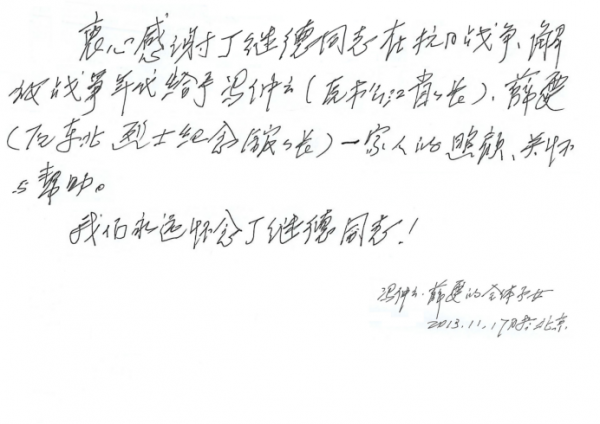 衷心感谢丁继德同志在抗日战争、解
放战争年代给予冯仲云(原松江省省长)、薛雯
(原东北烈士纪念馆馆长)一家人的照顾、关怀
与帮助。
我们永远怀念丁继德同志！
冯仲云、薛雯的全体子女
2013.11.17于北京